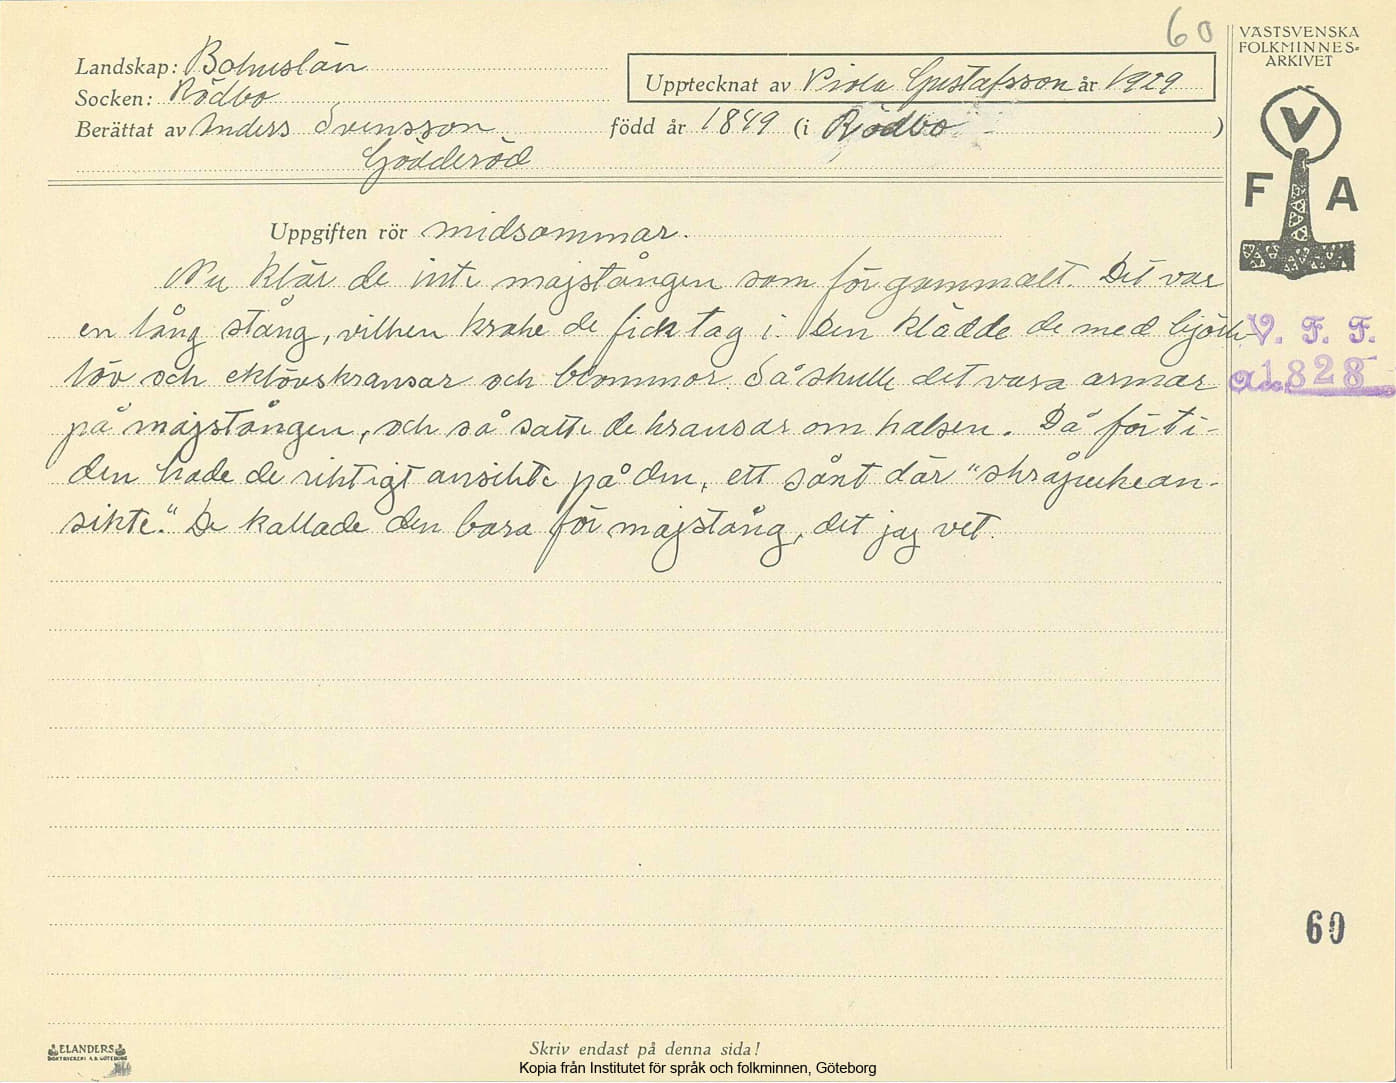 60
VÄSTSVENSKA
FOLKMINNES-
ARKIVET
Landskap: Bohuslän
Socken: Rödbo
Upptecknat av Viola Gustafsson år 1929
Berättat av Anders Svensson född år 1849 (i Rödbo )
Gödderöd
V
F A
Uppgiften rör midsommar.
Nu klär de inte majstången som för gammalt. Det var
en lång stång, vilken krake de fick tag i. Den klädde de med björk-
löv och eklövskransar och blommor. Så skulle det vara armar
på majstången, och så satte de kransar om halsen. Då för ti-
den hade de riktigt ansikte på den, ett sånt där "skråpukean-
sikte." De kallade den bara för majstång, det jag vet.
V. F. F.
1828
60
ELANDERS
BOKTRYCKERI A.B. GÖTEBORG
Skriv endast på denna sida!
Kopia från Institutet för språk och folkminnen, Göteborg